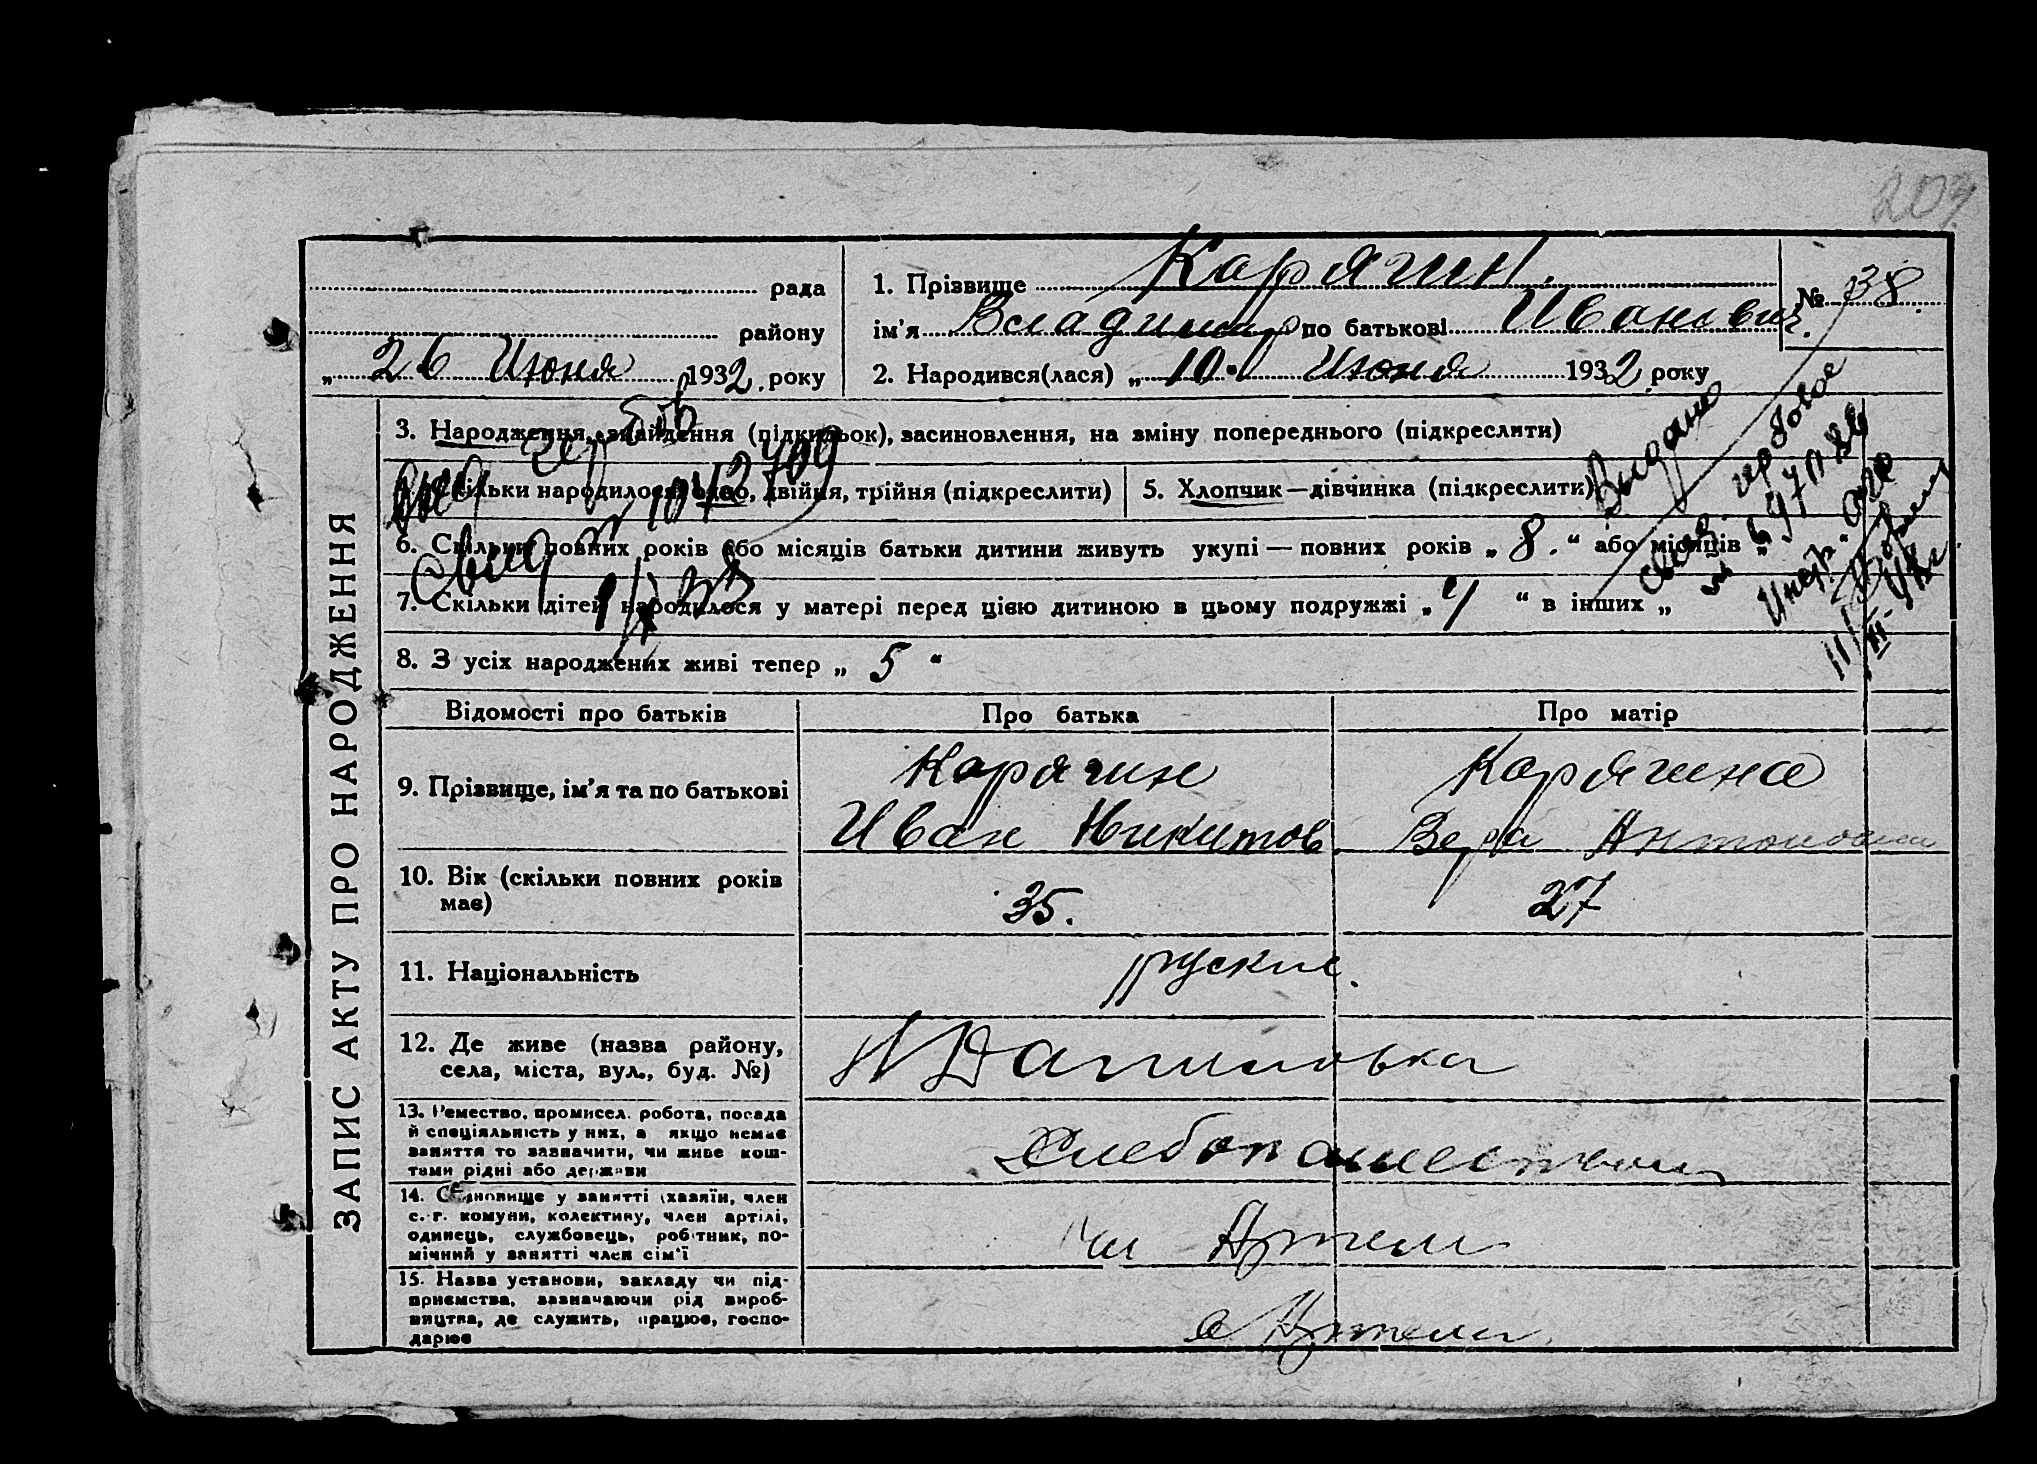 209
рада
району
„ 26 Июня 1932. року
1. Прізвище Карягин.
ім'я Владимир по батькові Иванович.
№ 38.
2. Народився(лася) „ 10. Июня 1932 року
ЗАПИС АКТУ ПРО НАРОДЖЕННЯ
3. Народження, знайдення (підкидьок), засиновлення, на зміну попереднього (підкреслити)
скільки народилося: одно, двійня, трійня (підкреслити)
5. Хлопчик—дівчинка (підкреслити)
6. Скільки повних років або місяців батьки дитини живуть укупі — повних років „ 8. “ або місяців „
7. Скільки дітей народилося у матері перед цією дитиною в цьому подружжі „ 4 “ в інших „
8. З усіх народжених живі тепер „ 5 “
Выдано
гербовое
Відомості про батьків
Про батька
Про матір
9. Прізвище, ім'я та по батькові
Карягин
Иван Никитов.
Карягина
Вера Антоновна
10. Вік (скільки повних років
має)
35.
27
11. Національність
руские.
12. Де живе (назва району,
села, міста, вул., буд. №)
Н Даниловка
13. Ремество, промисел, робота, посада
й спеціяльність у них, а якщо немає
заняття то зазначити, чи живе кош-
тами рідні або держави
Хлебопашеством
14. Становище у занятті (хазяїн, член
с.-г. комуни, колективу, член артілі,
одинець, службовець, робітник, по-
мічний у занятті член сім'ї
Чл Артели
15. Назва установи, закладу чи під-
приємства, зазначаючи рід вироб-
ництва, де служить, працює, госпо-
дарює
в Артели.